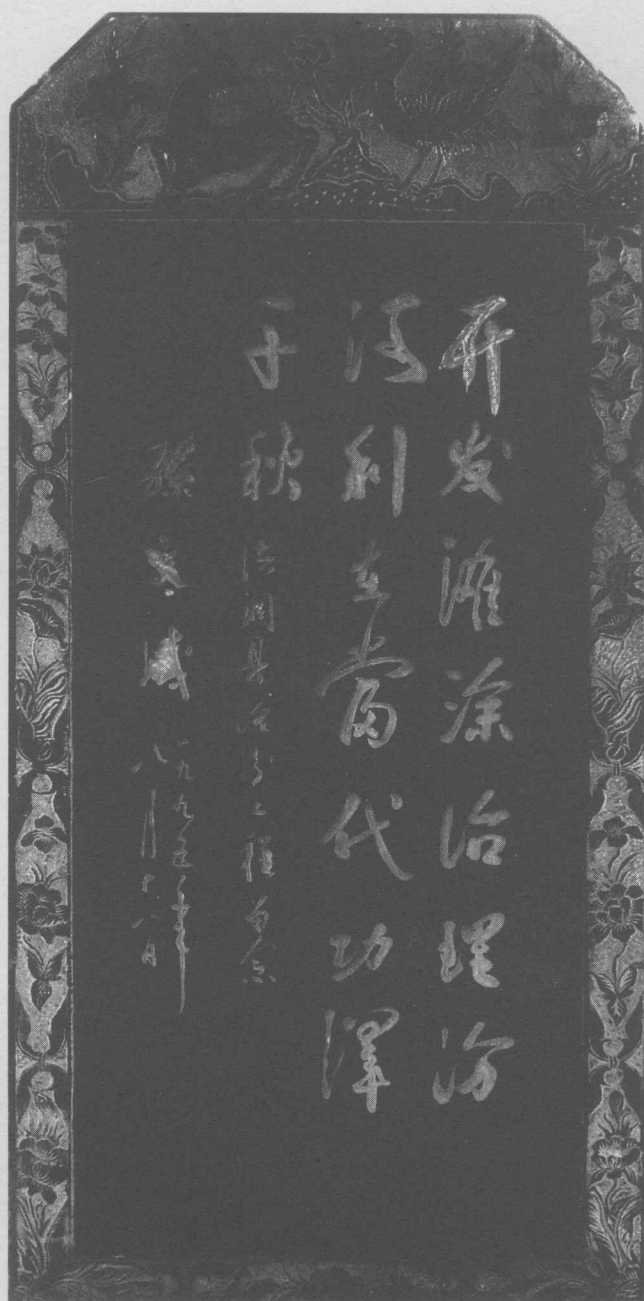 开发滩涂治理汾
河利在當代功泽
千秋 洪洞县治汾工程留念
孫文盛 一九九五年
八月十八日